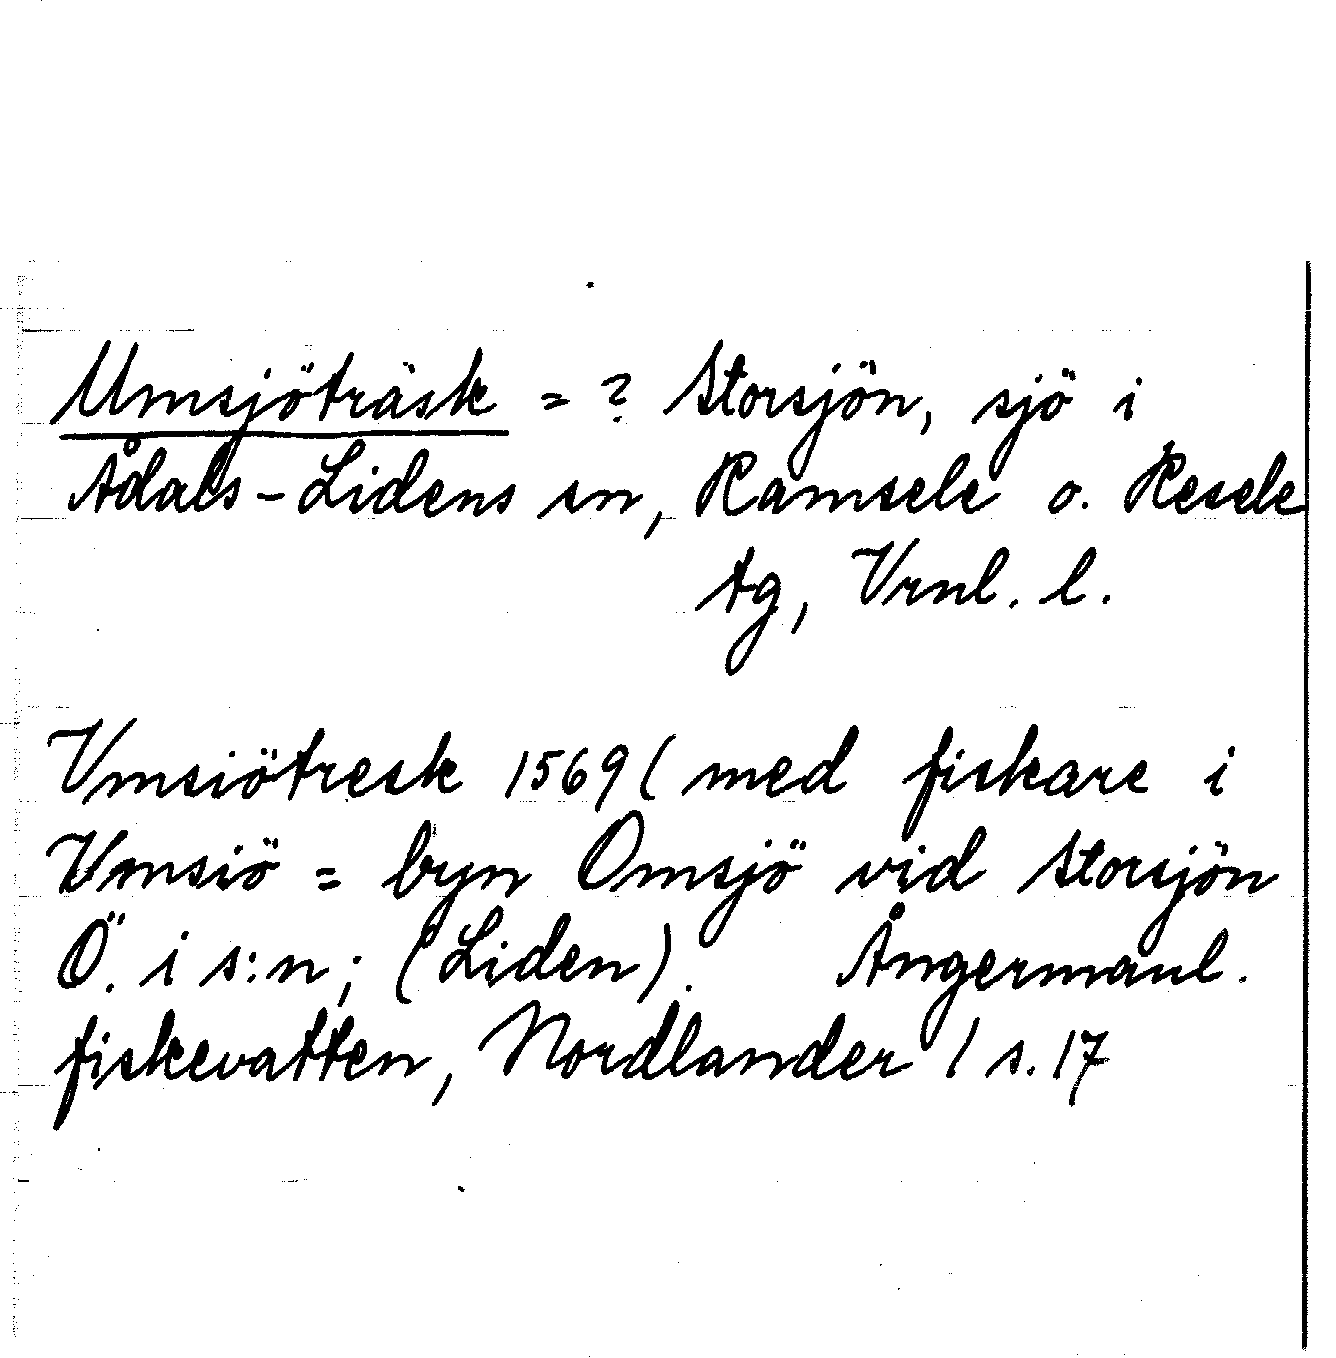 Umsjöträsk = ? Storsjön, sjö i
Ådals-Lidens sn, Ramsele o. Resele
tg, Vrnl. l.
Vmsiötresk 1569 ( med fiskare i
Vmsiö = byn Omsjö vid Storsjön
Ö. i s:n; (Liden). Ångermanl.
fiskevatten, Nordlander 1 s. 17